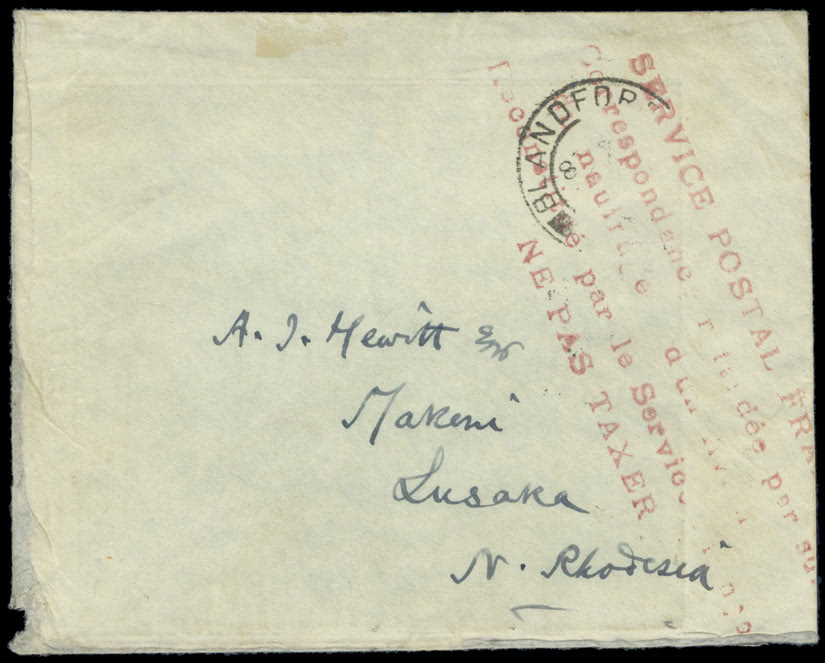 SERVICE POSTAL FRA
Correspondance retardée par su
naufrage d'un
par le Service
NE PAS TAXER
BLANDFOR
8
A. J. Hewitt Esqr
Makeni
Lusaka
N. Rhodesia